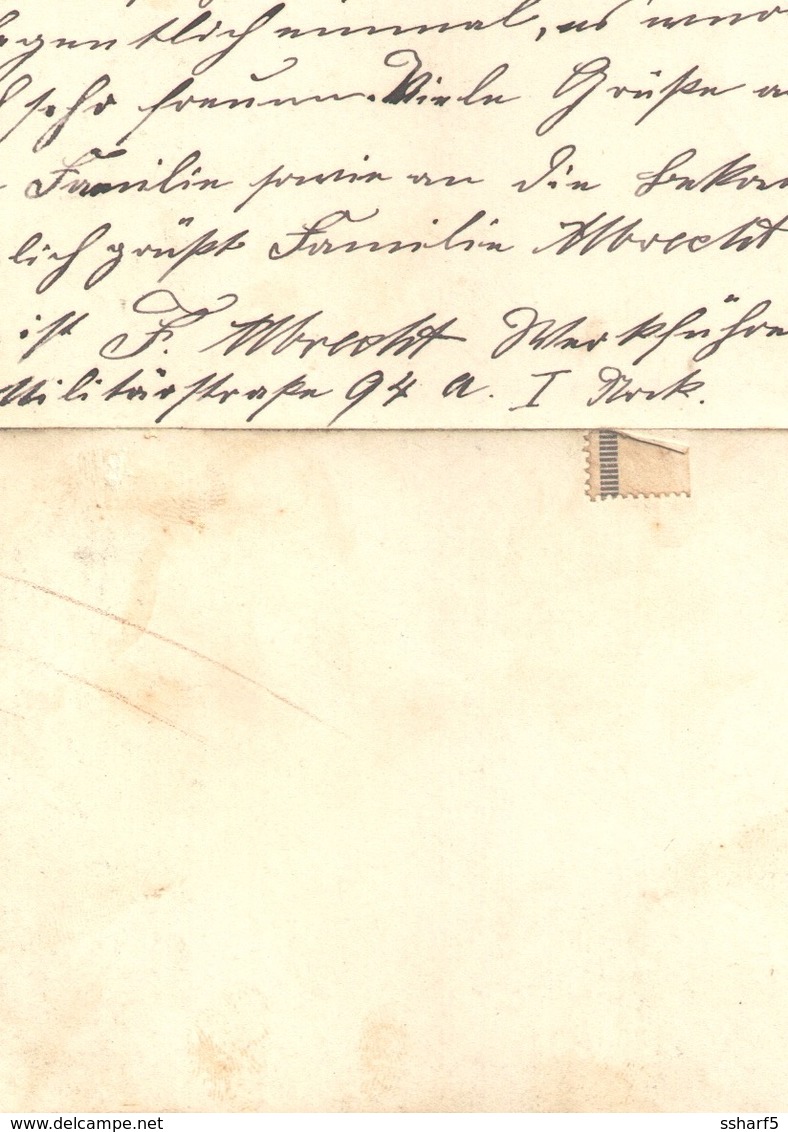 egentlich einmal, es würd
sehr freuen. Viele Grüße a
Familie sowie an die bekan
lich grüßt Familie Albrecht
ist F. Albrecht Werkführe
Militärstraße 94 a. I Stock.
www.delcampe.net
ssharf5